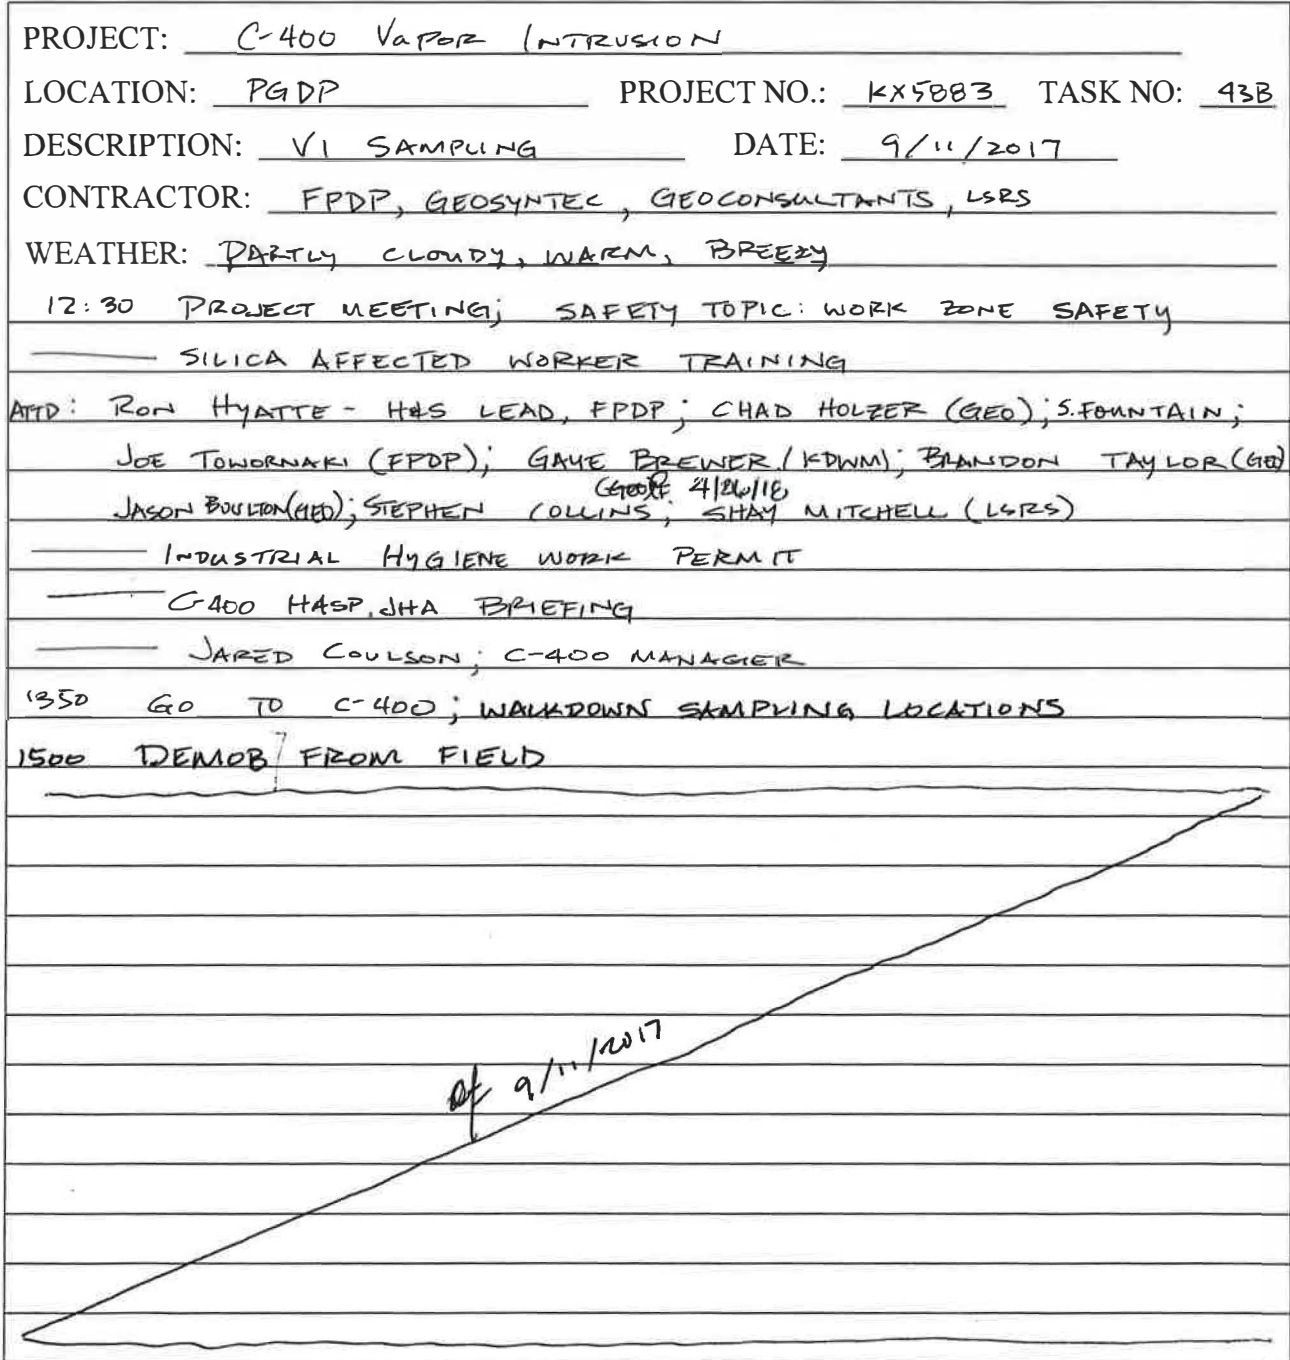 PROJECT: C-400 VAPOR INTRUSION
LOCATION: PGDP PROJECT NO.: KX5883 TASK NO: 43B
DESCRIPTION: VI SAMPLING DATE: 9/11/2017
CONTRACTOR: FPDP, GEOSYNTEC, GEOCONSULTANTS, LSRS
WEATHER: PARTLY CLOUDY, WARM, BREEZY
12:30 PROJECT MEETING; SAFETY TOPIC: WORK ZONE SAFETY
SILICA AFFECTED WORKER TRAINING
ATTD: RON HYATTE - H&S LEAD, FPDP; CHAD HOLZER (GEO); S. FOUNTAIN;
JOE TOWORNAKI (FPDP); GAYE BREWER (KDWM); BRANDON TAYLOR (GEO)
(GEO) 4/26/18
JASON BOULTON (GEO); STEPHEN COLLINS; SHAY MITCHELL (LSRS)
INDUSTRIAL HYGIENE WORK PERMIT
C-400 HASP, JHA BRIEFING
JARED COULSON; C-400 MANAGER
1350 GO TO C-400; WALKDOWN SAMPLING LOCATIONS
1500 DEMOB FROM FIELD
9/11/2017